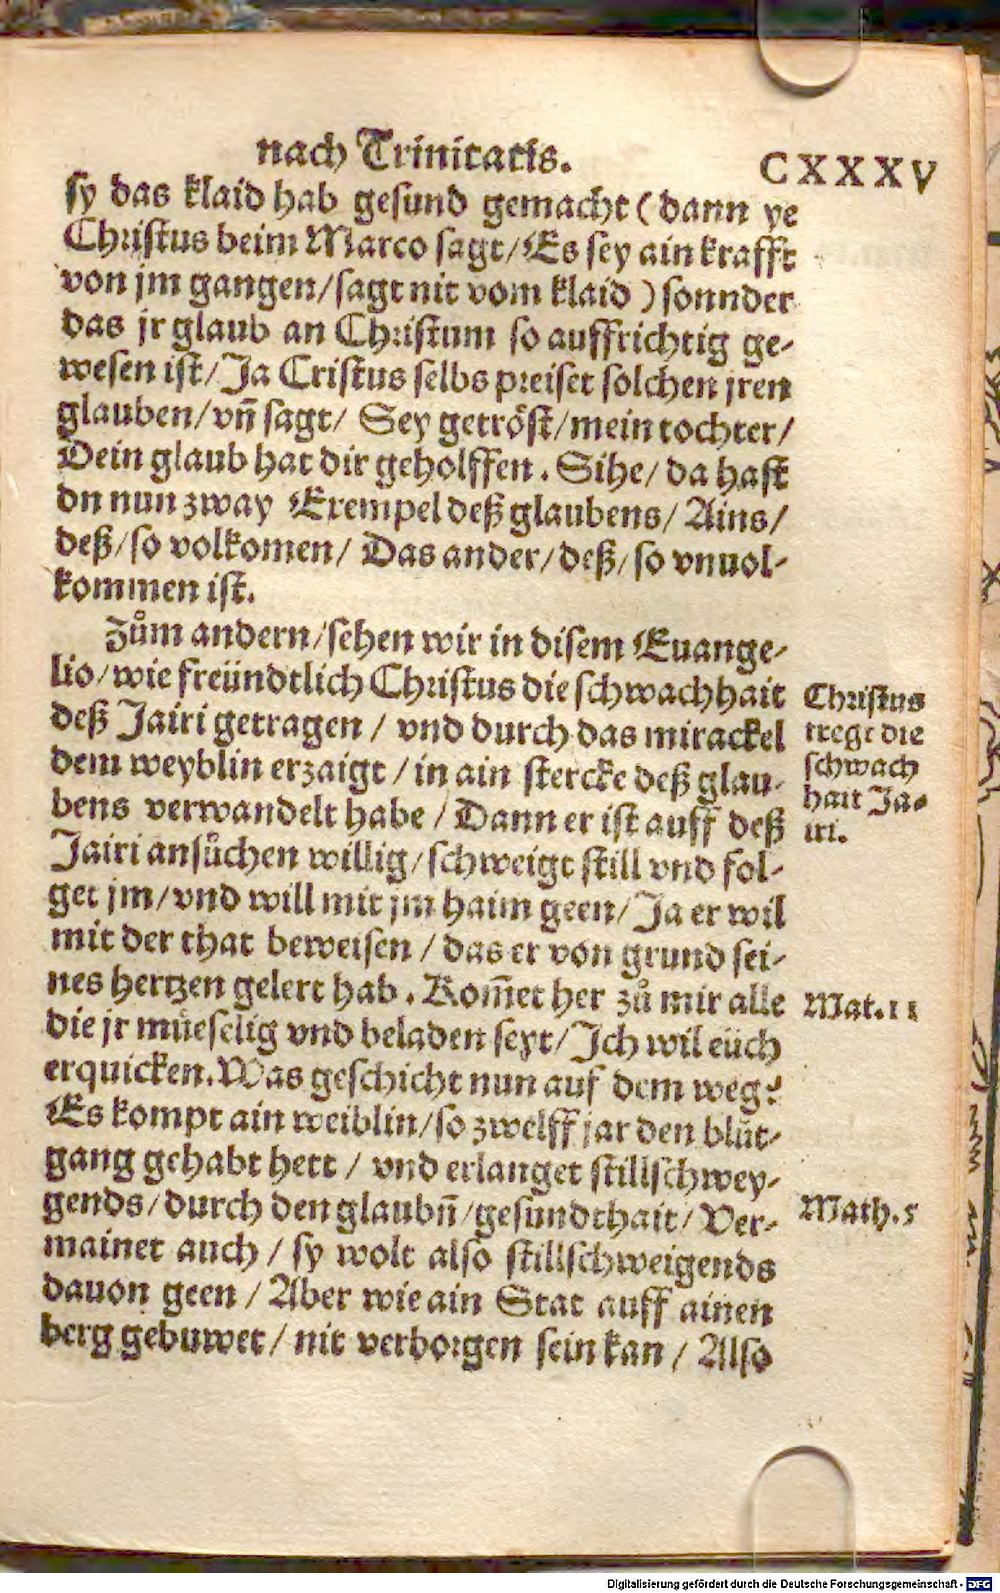 nach Trinitatis.
CXXXV
sy das klaid hab gesund gemacht (dann ye
Christus beim Marco sagt/Es sey ain krafft
von jm gangen/sagt nit vom klaid) sonnder
das jr glaub an Christum so auffrichtig ge-
wesen ist/Ja Cristus selbs preiset solchen jren
glauben/vñ sagt/ Sey getröst/mein tochter/
Dein glaub hat dir geholffen. Sihe/ da hast
dn nun zway Exempel deß glaubens/ Ains/
deß/so volkomen/ Das ander/deß/so vnuol-
kommen ist.
Zům andern/sehen wir in disem Euange-
lio/wie freündtlich Christus die schwachhait
deß Jairi getragen / vnd durch das mirackel
dem weyblin erzaigt / in ain stercke deß glau-
bens verwandelt habe / Dann er ist auff deß
Jairi ansůchen willig/schweigt still vnd fol-
get jm/vnd will mit jm haim geen/Ja er wil
mit der that beweisen / das er von grund sei-
nes hertzen gelert hab. Kom̃et her zů mir alle
die jr müeselig vnd beladen seyt/Ich wil eüch
erquicken. Was geschicht nun auf dem weg?
Es kompt ain weiblin/so zwelff jar den blůt-
gang gehabt hett / vnd erlanget stillschwey-
gends/durch den glaubñ/gesundthait/ Ver-
mainet auch / sy wolt also stillschweigends
dauon geen / Aber wie ain Stat auff ainen
berg gebuwet/ nit verborgen sein kan / Also
Christus
tregt die
schwach
hait Ja-
iri.
Mat. 11
Math. 5
Digitalisierung gefördert durch die Deutsche Forschungsgemeinschaft - DFG